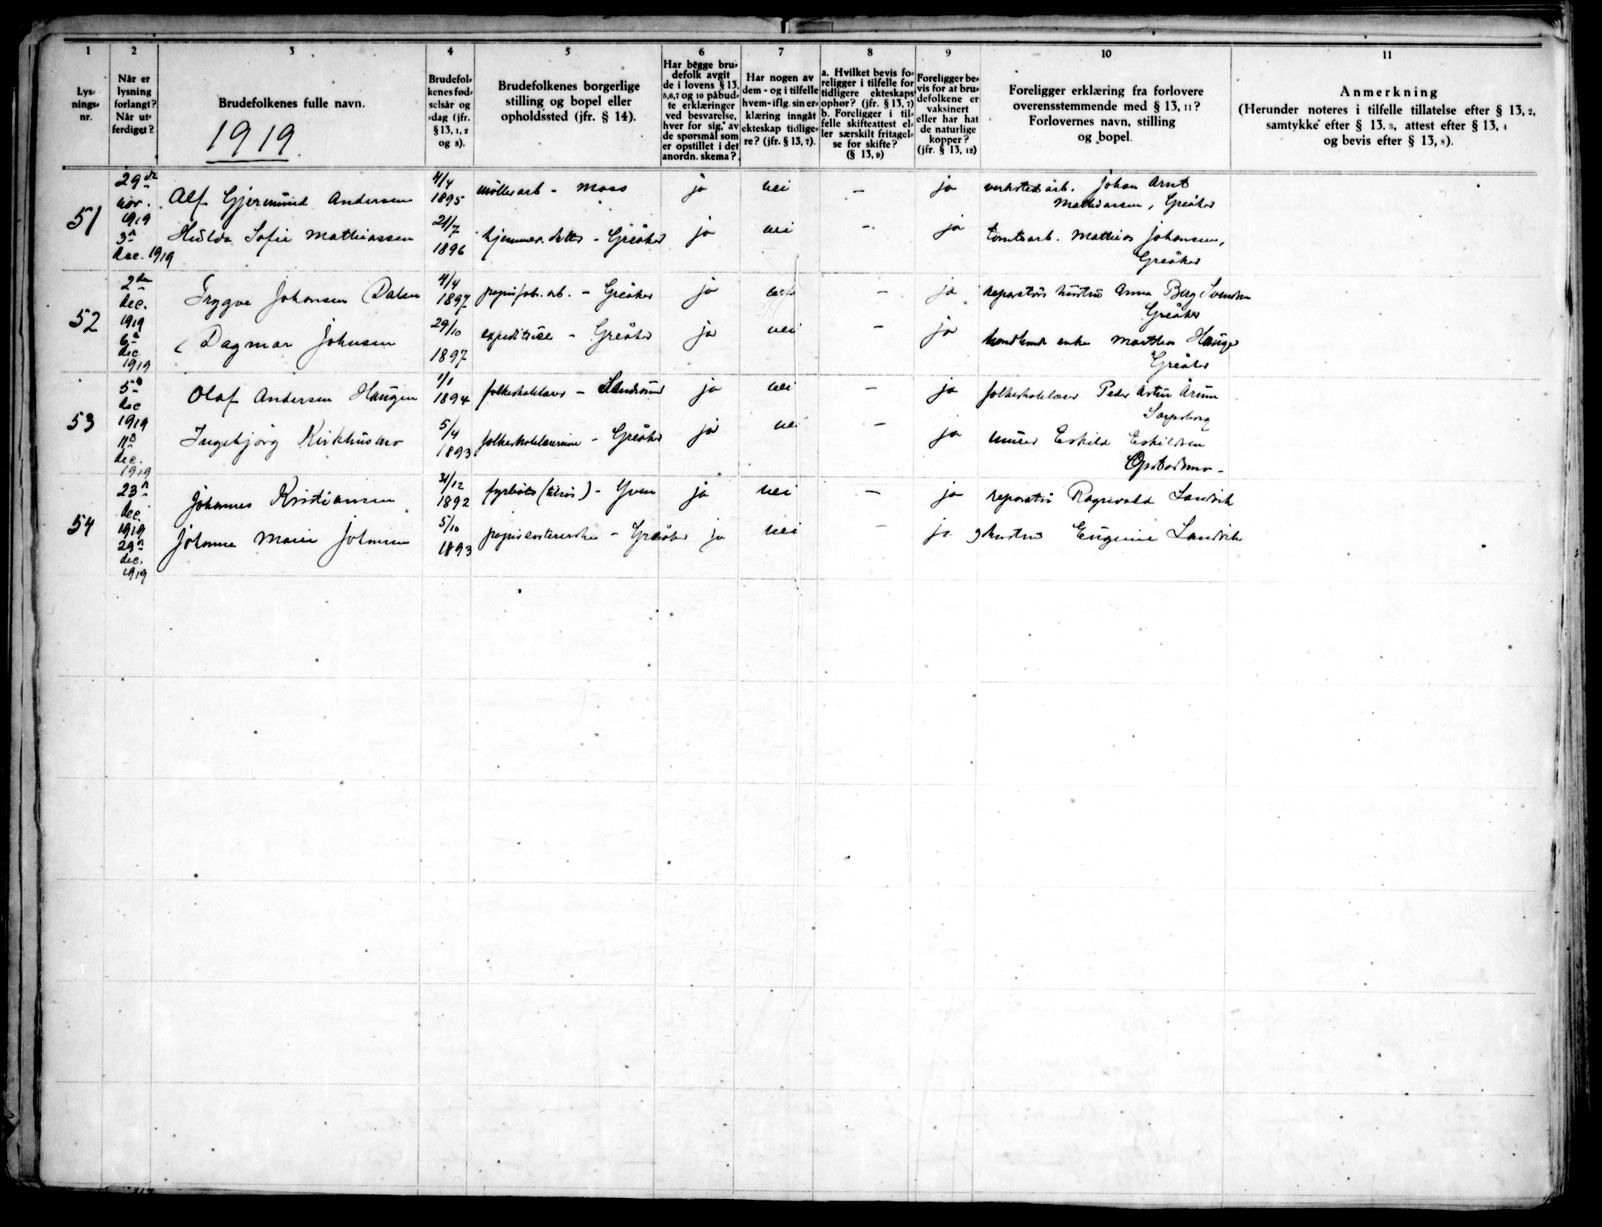 1 2 3 4 5 6 7 8 9 10 11
Lys-
nings-
nr.
Når er
lysning
forlangt?
Når ut-
ferdiget?
Brudefolkenes fulle navn.
1919
Brudefol-
kenes fød-
selsår og
-dag (jfr.
§ 13, 1, 2
og 8).
Brudefolkenes borgerlige
stilling og bopel eller
opholdssted (jfr. § 14).
Har begge bru-
defolk avgit
de i lovens § 13,
5,6,7 og 10 påbud-
te erklæringer
ved besvarelse,
hver for sig, av
de spørsmål som
er opstillet i det
anordn. skema?
Har nogen av
dem - og i tilfelle
hvem - iflg. sin er-
klæring inngåt
ekteskap tidlige-
re? (jfr. § 13, 7).
a. Hvilket bevis fo-
religger i tilfelle for
tidligere ekteskaps
ophør? (jfr. § 13, 7)
b. Foreligger i til-
felle skifteattest el-
ler særskilt fritagel-
se for skifte?
(§ 13, 9)
Foreligger be-
vis for at bru-
defolkene er
vaksinert
eller har hat
de naturlige
kopper?
(jfr. § 13, 12)
Foreligger erklæring fra forlovere
overensstemmende med § 13, 11?
Forlovernes navn, stilling
og bopel.
Anmerkning
(Herunder noteres i tilfelle tillatelse efter § 13, 2,
samtykke efter § 13. 3, attest efter § 13, 4
og bevis efter § 13, 8).
51
29
nov.
1919
3
dec. 1919
Alf Gjermund Andersen 4/4 1895 møllearb - Moss ja nei - ja verksted arb. Johan Arnt
Mathiassen, Greåker
Hulda Sofie Mathiassen 21/7 1896 hjemmev. datter - Greåker ja nei - ja tomtearb. Mathias Johansen,
Greåker
52
2den
dec.
1919
6
dec
1919
Trygve Johansen Dalen 4/4 1897 papirfab. arb. - Greåker ja nei - ja reparatørs hustru Anna Berg Svendsen
Greåker
Dagmar Johnsen 29/10 1897 expeditrise - Greåker ja nei - ja enke Marthea Hauge
Greåker
53
5
dec
1919
11
dec.
1919
Olaf Andersen Haugen 1/1 1894 folkeskolelærer - ja nei - ja folkeskolelærer Peder Artur Årum
Sarpsborg
Ingebjørg Kirkhusmo 5/4 1893 folkeskolelærerinne - Greåker ja nei - ja murer Eskild Eskildsen
Opstadmo -
54
23
dec.
1919
29
dec.
1919
Johannes Kristiansen 31/12 1892 fyrbøter - Yven ja nei - ja reparatør Ragnvald Sandvik
Johanne Marie Johansen 5/10 1893 - Greåker ja nei - ja hustru Eugenie Sandvik